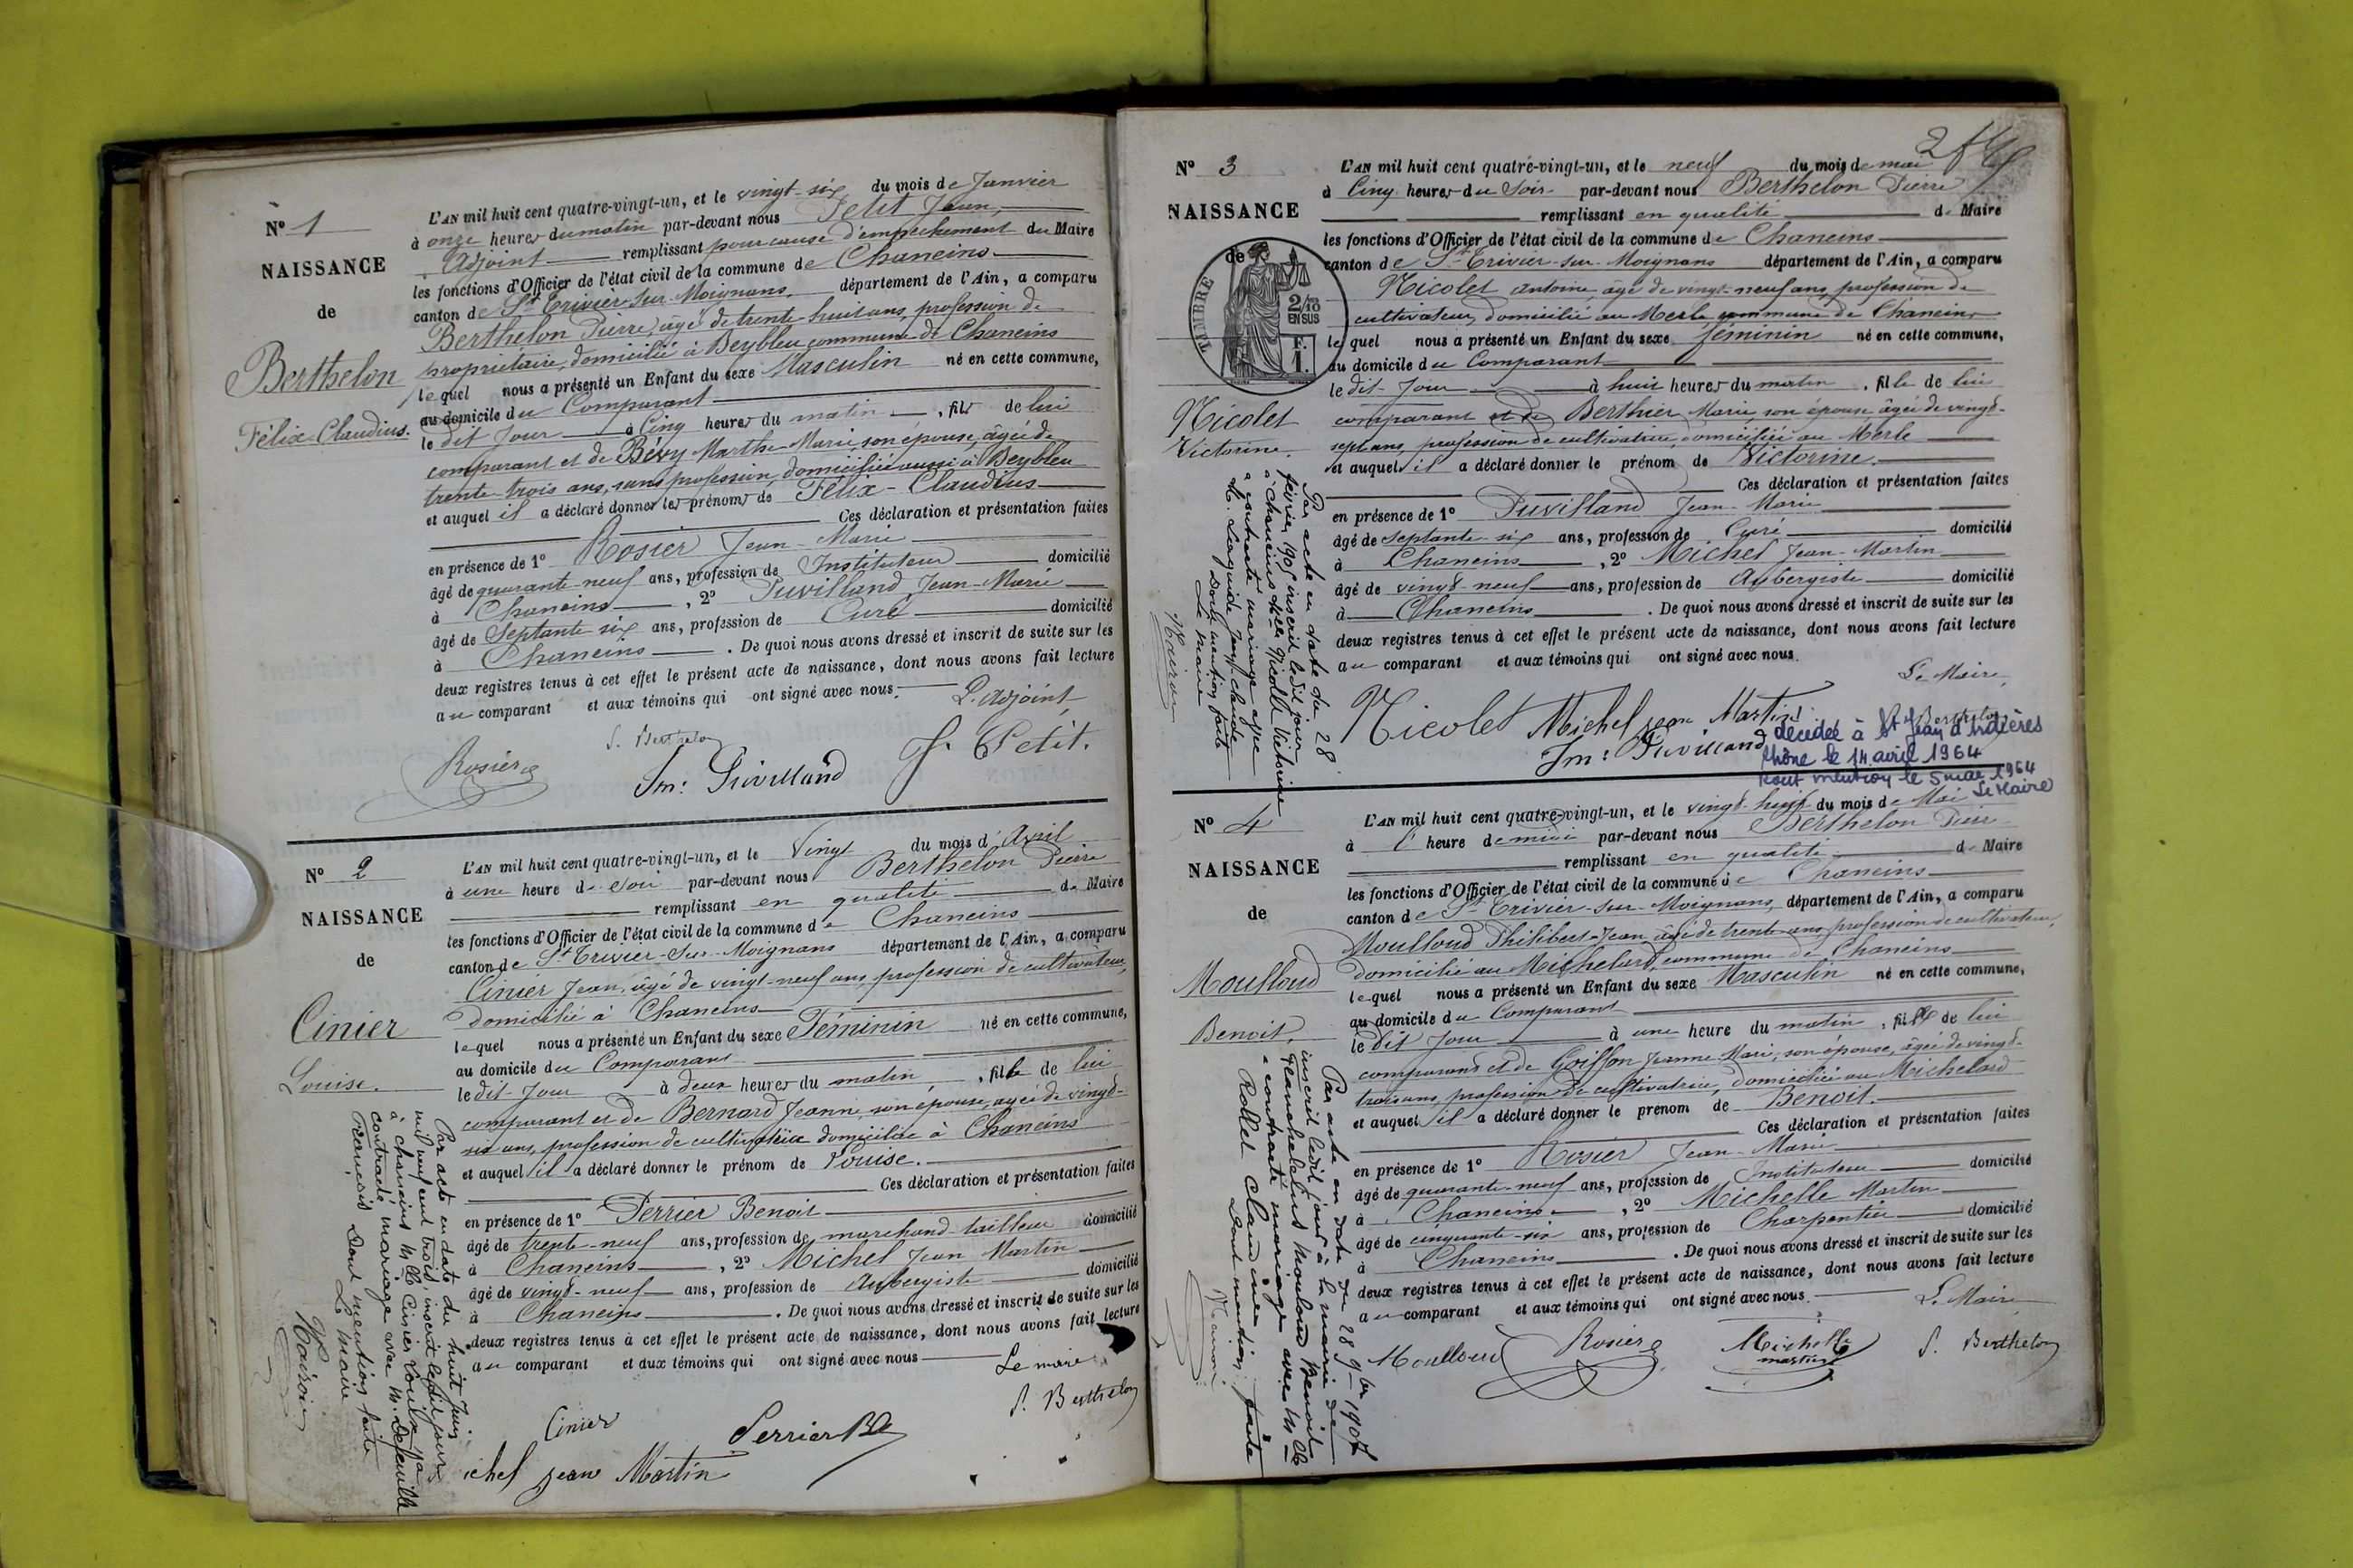 N° 1
NAISSANCE
de
Berthelon
Félix-Claudius.
L'AN mil huit cent quatre-vingt-un, et le vingt-six du mois de Janvier
à onze heures du matin par-devant nous Petit Jean,
Adjoint remplissant pour cause d'empêchement du Maire
les fonctions d'Officier de l'état civil de la commune de Chaneins
canton de St Trivier-sur-Moignans, département de l'Ain, a comparu
Berthelon Pierre, âgé de trente-huit ans, profession de
propriétaire, domicilié à Beybleu commune de Chaneins
lequel nous a présenté un Enfant du sexe Masculin né en cette commune,
au domicile du Comparant
le dit Jour à Cinq heures du matin, fils de lui
comparant et de Bévy Marthe-Marie son épouse, âgée de
trente-trois ans, sans profession, domiciliée aussi à Beybleu
et auquel il a déclaré donner les prénoms de Félix-Claudius
Ces déclaration et présentation faites
en présence de 1° Rosier Jean-Marie
âgé de quarante-neuf ans, profession de Instituteur domicilié
à Chaneins, 2° Puvilland Jean-Marie
âgé de Septante six ans, profession de Curé domicilié
à Chaneins. De quoi nous avons dressé et inscrit de suite sur les
deux registres tenus à cet effet le présent acte de naissance, dont nous avons fait lecture
au comparant et aux témoins qui ont signé avec nous.
L'adjoint,
P. Berthelon
Rosier
Jm: Puvilland
J. Petit.
N° 2
NAISSANCE
de
Cinier
Louise.
L'AN mil huit cent quatre-vingt-un, et le Vingt du mois d'Avril
à une heure de soir par-devant nous Berthelon Pierre
remplissant en qualité de Maire
les fonctions d'Officier de l'état civil de la commune de Chaneins
canton de St Trivier-sur-Moignans département de l'Ain, a comparu
Cinier Jean, âgé de vingt-neuf ans, profession de cultivateur,
domicilié à Chaneins
lequel nous a présenté un Enfant du sexe Féminin né en cette commune,
au domicile du Comparant
le dit-Jour à deux heures du matin, fille de lui
comparant et de Bernard Jeanne son épouse, âgée de vingt-
six ans, profession de cultivatrice domiciliée à Chaneins
et auquel il a déclaré donner le prénom de Louise.
Ces déclaration et présentation faites
en présence de 1° Perrier Benoit
âgé de trente-neuf ans, profession de marchand-tailleur domicilié
à Chaneins, 2° Michel Jean Martin
âgé de vingt-neuf ans, profession de Aubergiste domicilié
à Chaneins. De quoi nous avons dressé et inscrit de suite sur les
deux registres tenus à cet effet le présent acte de naissance, dont nous avons fait lecture
au comparant et aux témoins qui ont signé avec nous
Le maire
P. Berthelon
Cinier
Perrier Bt
ichel jean Martin
Par acte en date du huit Juin
mil neuf cent trois, inscrit ledit jour
à chaneins Mlle Cinier Louise a
contracté mariage avec M.
François Dont mention faite
Le maire
N° 3
NAISSANCE
de
TIMBRE
2/10
EN SUS
F.
1.
Nicolet
Victorine.
2
L'AN mil huit cent quatre-vingt-un, et le neuf du mois de mai
à Cinq heures du Soir par-devant nous Berthelon Pierre
remplissant en qualité de Maire
les fonctions d'Officier de l'état civil de la commune de Chaneins
canton de St Trivier-sur-Moignans département de l'Ain, a comparu
Nicolet Antoine, âgé de vingt-neuf ans, profession de
cultivateur, domicilié au Merle commune de Chaneins
lequel nous a présenté un Enfant du sexe féminin né en cette commune,
au domicile du Comparant
le dit-Jour à huit heures du matin, fille de lui
comparant et de Berthier Marie, son épouse, âgée de vingt-
sept ans, profession de cultivatrice, domiciliée au Merle
et auquel il a déclaré donner le prénom de Victorine.
Ces déclaration et présentation faites
en présence de 1° Puvilland Jean-Marie
âgé de septante-six ans, profession de Curé domicilié
à Chaneins, 2° Michel Jean-Martin
âgé de vingt-neuf ans, profession de Aubergiste domicilié
à Chaneins. De quoi nous avons dressé et inscrit de suite sur les
deux registres tenus à cet effet le présent acte de naissance, dont nous avons fait lecture
au comparant et aux témoins qui ont signé avec nous.
Le Maire,
P. Berthelon
Nicolet Michel jean Martin
Jm: Puvilland
Par acte en date du 28
février 1905 inscrit ledit jour
à chaneins Delle Nicolet Victorine
a contracté mariage avec
M. Jean claude
Dont mention faite
Le maire
décédée à St Jean d'Ardières
Rhône le 14 avril 1964
Dont mention le 5 mai 1964
Le Maire
N° 4
NAISSANCE
de
Moulloud
Benoit.
L'AN mil huit cent quatre-vingt-un, et le vingt-huit du mois de Mai
à l' heure de midi par-devant nous Berthelon Pierre
remplissant en qualité de Maire
les fonctions d'Officier de l'état civil de la commune de Chaneins
canton de St Trivier-sur-Moignans, département de l'Ain, a comparu
Moulloud Philibert-Jean âgé de trente ans profession de cultivateur,
domicilié au Michelard, commune de Chaneins
lequel nous a présenté un Enfant du sexe Masculin né en cette commune,
au domicile du Comparant
le dit Jour à une heure du matin, fils de lui
comparant et de Goiffon Jeanne Marie, son épouse, âgée de vingt-
trois ans, profession de cultivatrice, domiciliée au Michelard
et auquel il a déclaré donner le prénom de Benoit.
Ces déclaration et présentation faites
en présence de 1° Rosier Jean-Marie
âgé de quarante-neuf ans, profession de Instituteur domicilié
à Chaneins, 2° Michelle Martin
âgé de cinquante-six ans, profession de Charpentier domicilié
à Chaneins. De quoi nous avons dressé et inscrit de suite sur les
deux registres tenus à cet effet le présent acte de naissance, dont nous avons fait lecture
au comparant et aux témoins qui ont signé avec nous.
Le Maire
Moulloud Rosier Michelle martin P. Berthelon
Par acte en date du 28 9bre 1907
inscrit ledit jour à la mairie de
Mouloud Benoit
a contracté mariage avec Mlle
Rollet Claudine
Dont mention faite